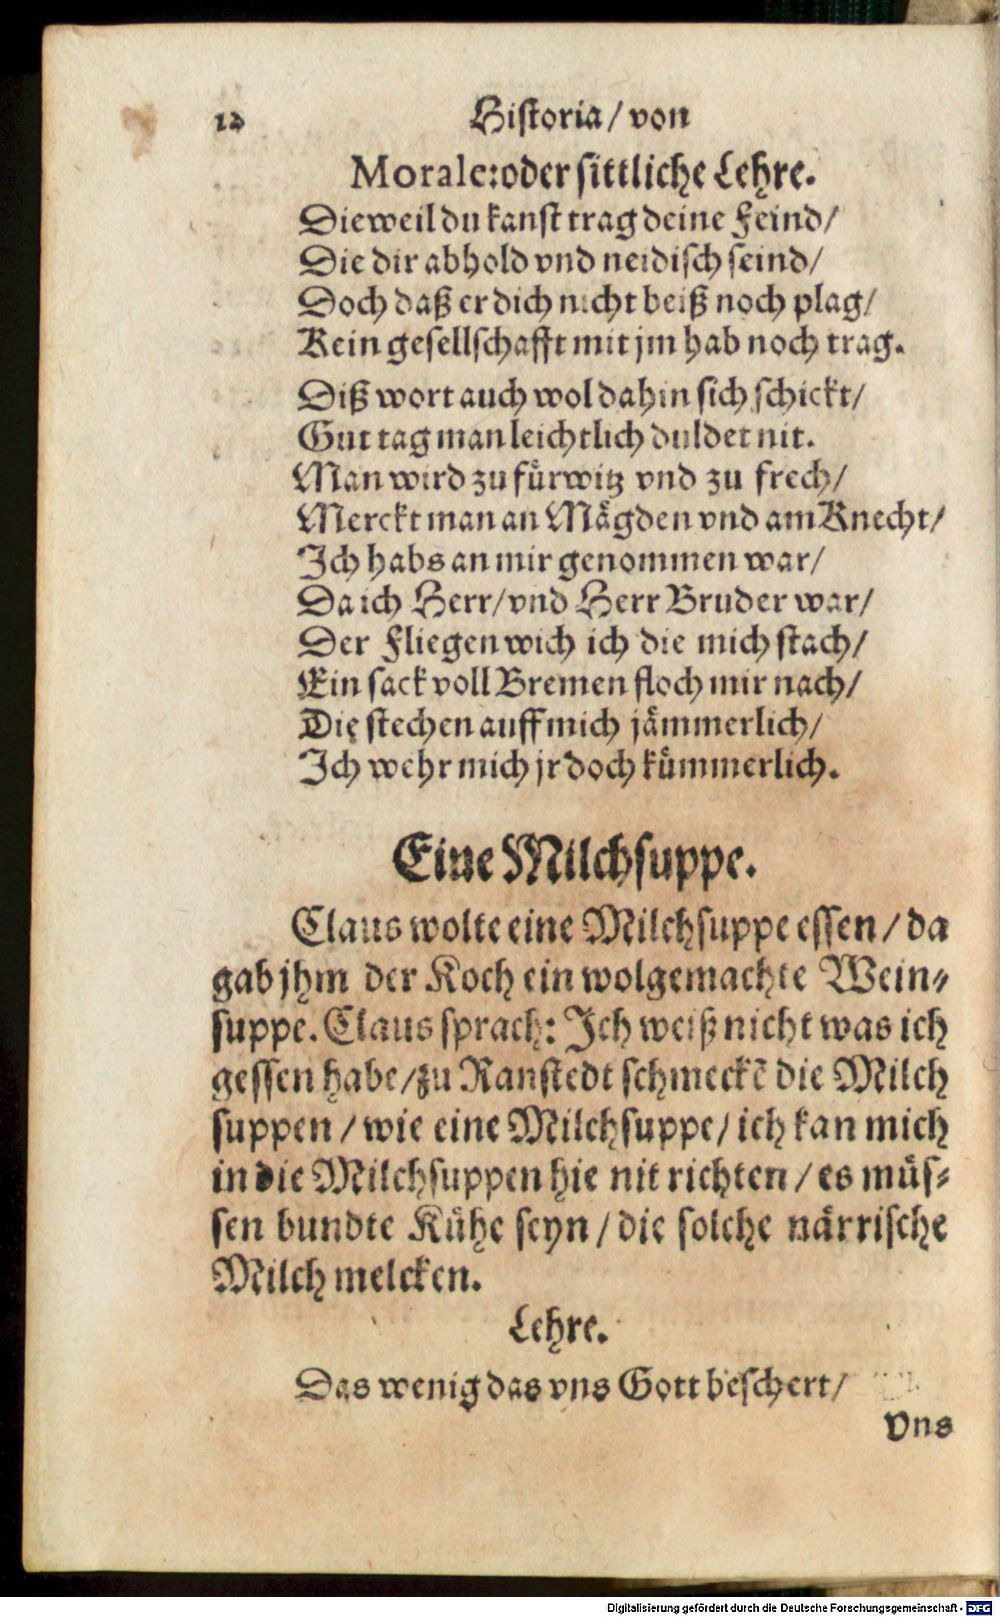 12 Historia / von
Morale: oder sittliche Lehre.
Dieweil du kanst trag deine Feind /
Die dir abhold vnd neidisch seind /
Doch daß er dich nicht beiß noch plag /
Kein gesellschafft mit jm hab noch trag.
Diß wort auch wol dahin sich schickt /
Gut tag man leichtlich duldet nit.
Man wird zu fürwitz vnd zu frech /
Merckt man an Mägden vnd am Knecht /
Ich habs an mir genommen war /
Da ich Herr / vnd Herr Bruder war /
Der Fliegen wich ich die mich stach /
Ein sack voll Bremen floch mir nach /
Die stechen auff mich jämmerlich /
Ich wehr mich jr doch kümmerlich.
Eine Milchsuppe.
Claus wolte eine Milchsuppe essen / da
gab jhm der Koch ein wolgemachte Wein-
suppe. Claus sprach: Ich weiß nicht was ich
gessen habe / zu Ranstedt schmeckē die Milch
suppen / wie eine Milchsuppe / ich kan mich
in die Milchsuppen hie nit richten / es müs-
sen bundte Kühe seyn / die solche närrische
Milch melcken.
Lehre.
Das wenig das vns Gott beschert /
Vns
Digitalisierung gefördert durch die Deutsche Forschungsgemeinschaft - DFG